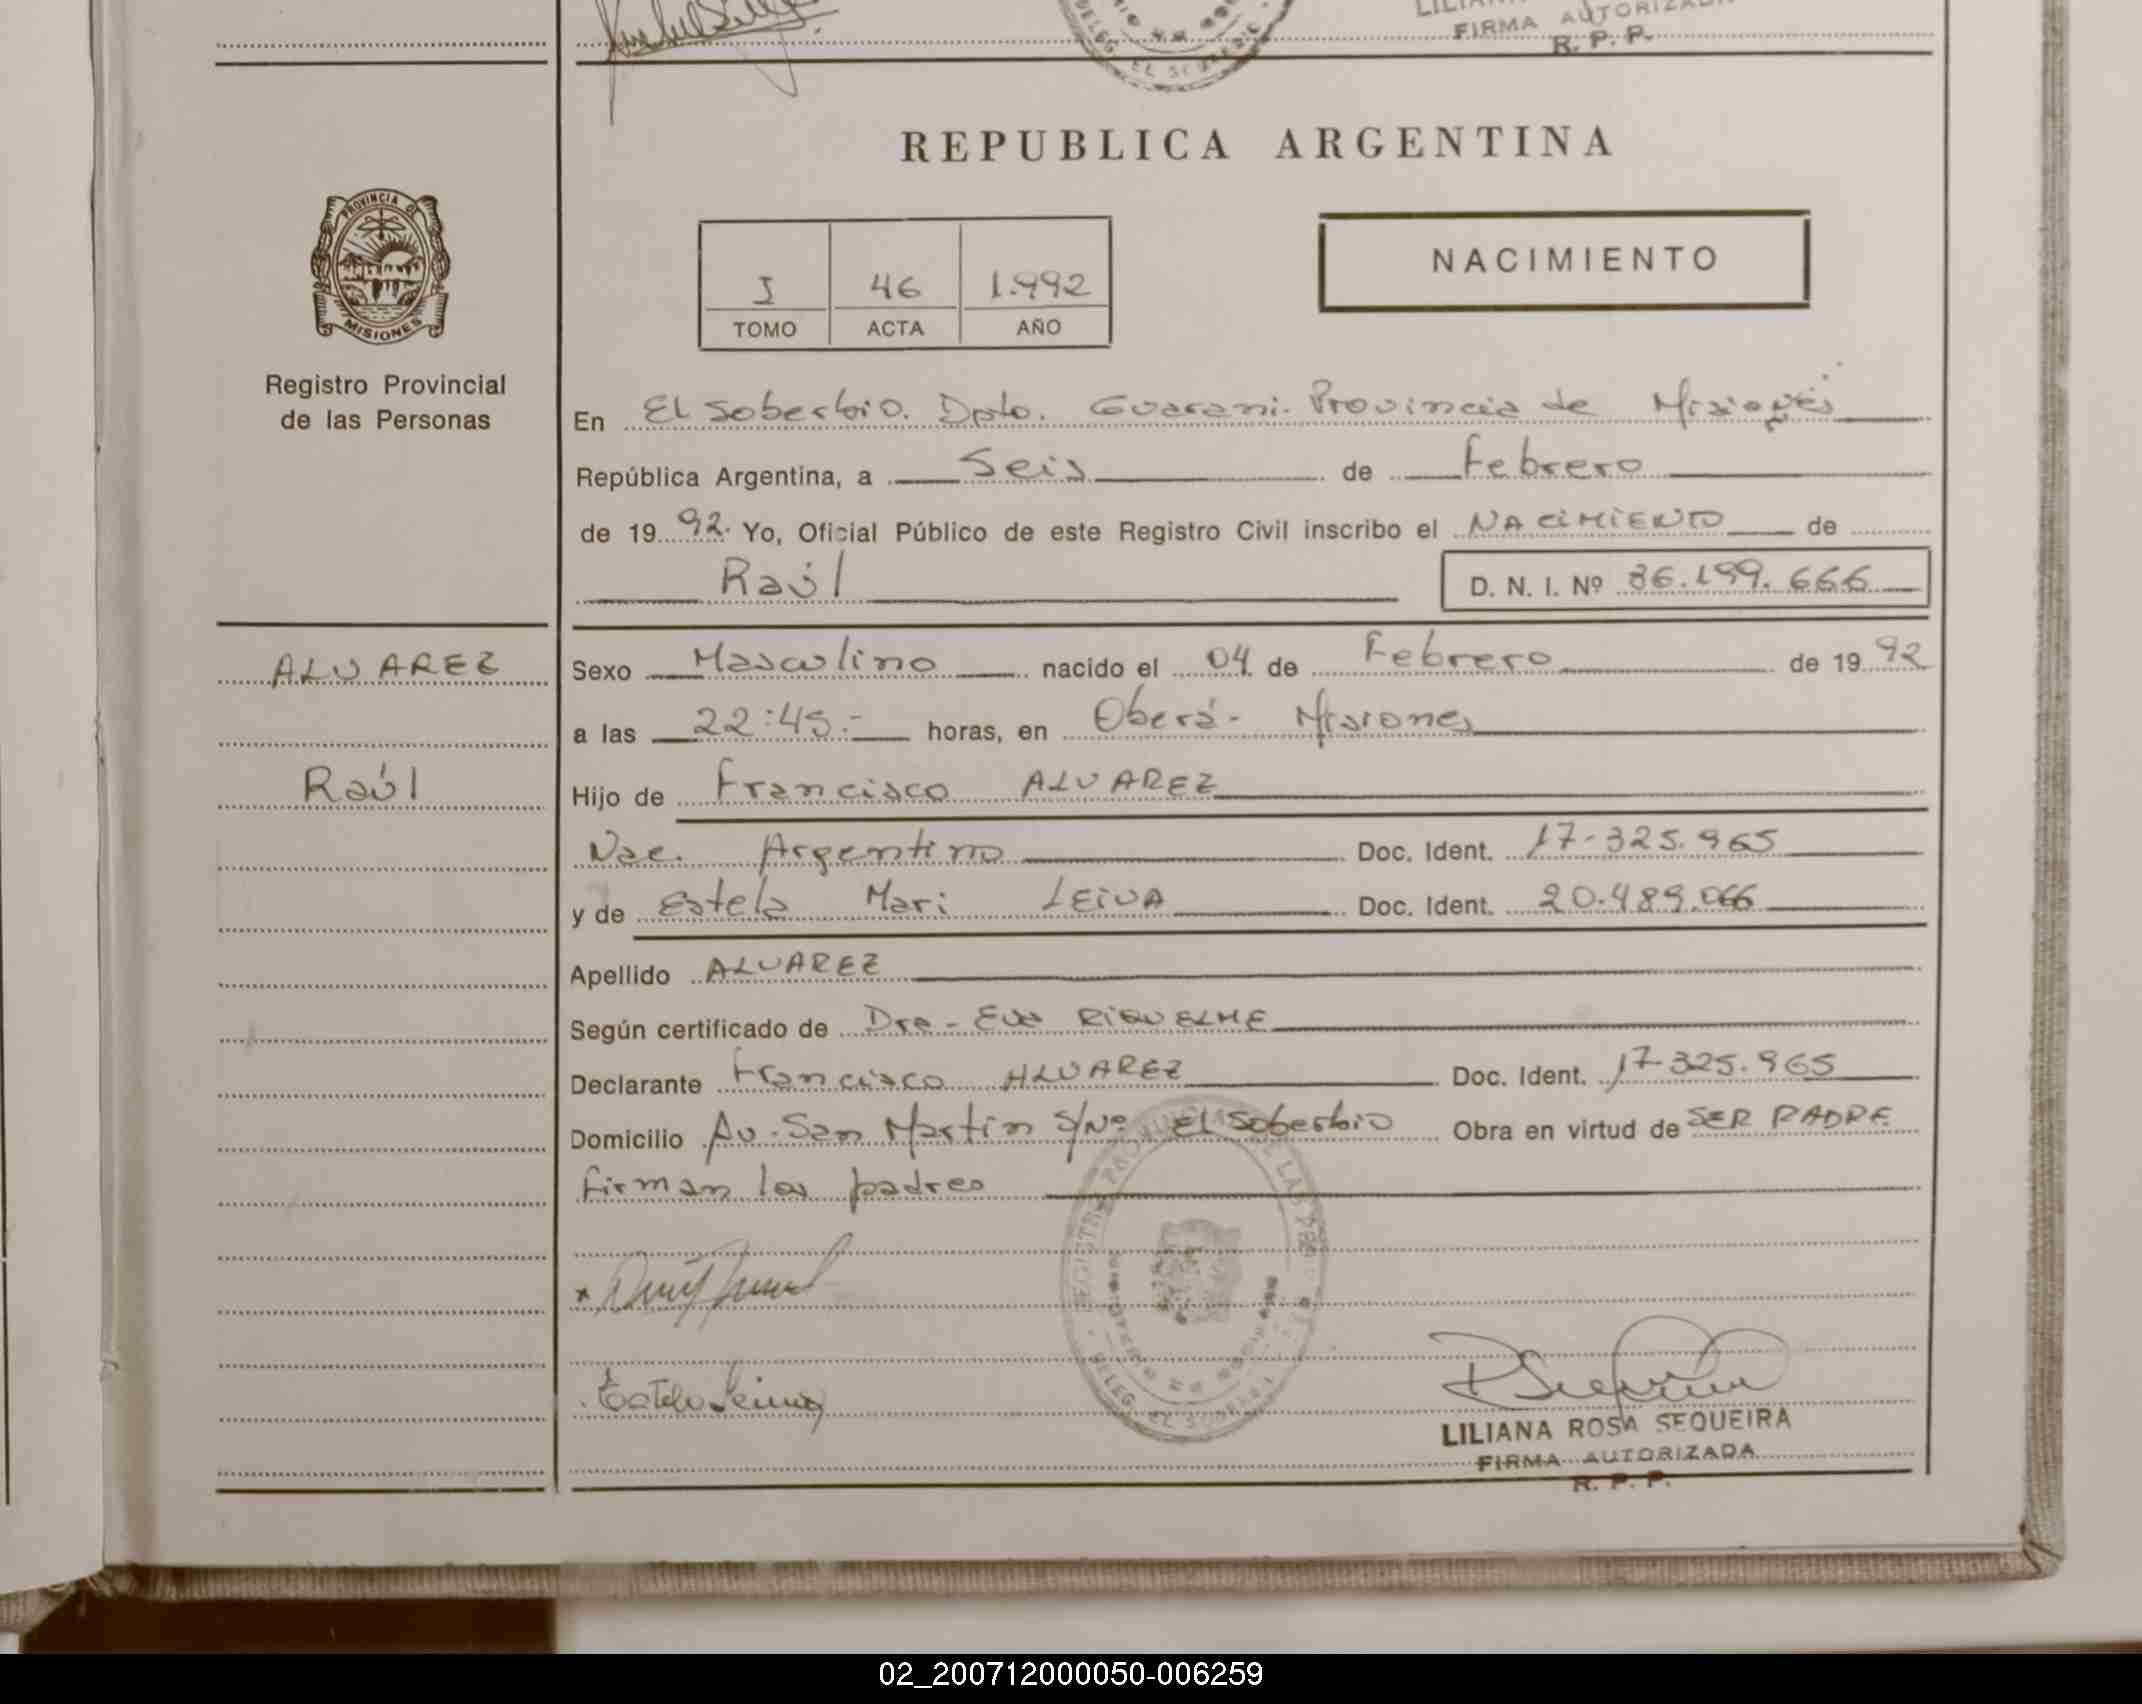 FIRMA AUTORIZADA
R. P. P.
DELEG. EL SOBERBIO
REPUBLICA ARGENTINA
PROVINCIA DE
MISIONES
Registro Provincial
de las Personas
I 46 1.992
TOMO ACTA AÑO
NACIMIENTO
En El Soberbio. Dpto. Guarani. Provincia de Misiones
República Argentina, a Seis de Febrero
de 1992. Yo, Oficial Público de este Registro Civil inscribo el NACIMIENTO de
Raúl D. N. I. Nº 36.199.666
ALVAREZ
Raúl
Sexo Masculino nacido el 04 de Febrero de 1992
a las 22:45.- horas, en Oberá- Misiones
Hijo de Francisco ALVAREZ
Nac. Argentino Doc. Ident. 17-325.965
y de Estela Mari LEIVA Doc. Ident. 20.489.066
Apellido ALVAREZ
Según certificado de Dra- Eva RIQUELME
Declarante Francisco ALVAREZ Doc. Ident. 17-325.965
Domicilio Av. San Martín S/Nº El Soberbio Obra en virtud de SER PADRE
firman los padres
Estela Leiva
LILIANA ROSA SEQUEIRA
FIRMA AUTORIZADA
R. P. P.
02_200712000050-006259